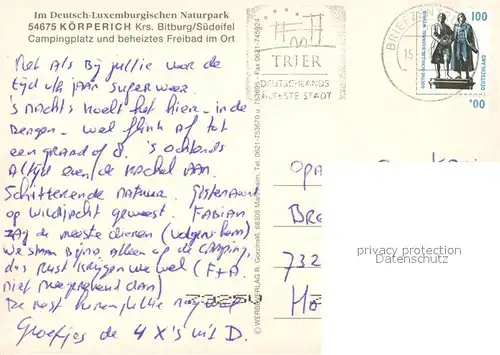 Im Deutsch-Luxemburgischen Naturpark
54675 KÖRPERICH Krs. Bitburg/Südeifel
Campingplatz und beheiztes Freibad im Ort
Net als Bij jullie voor de
tijd v/h jaar super weer
's nachts koelt het hier in de
Bergen wel flink af tot
een graad of 8. 's Ochtends
Altijd even de kachel AAN.
Schitterende natuur. Gisteravond
op wildjacht geweest. FABIAN
zag de meeste dieren (volgens hem)
We staan Bijna Alleen op de camping,
dus Rust krijgen we wel (F+D.
niet meegerekend dan)
De rest horen jullie nog wel
Groetjes de 4 X's uit D.
© WERBEVERLAG R. Gorzinski, 68305 Mannheim, Tel. 0621-753670 u. 753685 - Fax 0621-745924
TRIER
DEUTSCHLANDS
ÄLTESTE STADT
BRIEFZ
15.
100
GOETHE-SCHILLER-DENKMAL WEIMAR
DEUTSCHLAND
100
OPA
BRE
732
Ho
privacy protection
Datenschutz